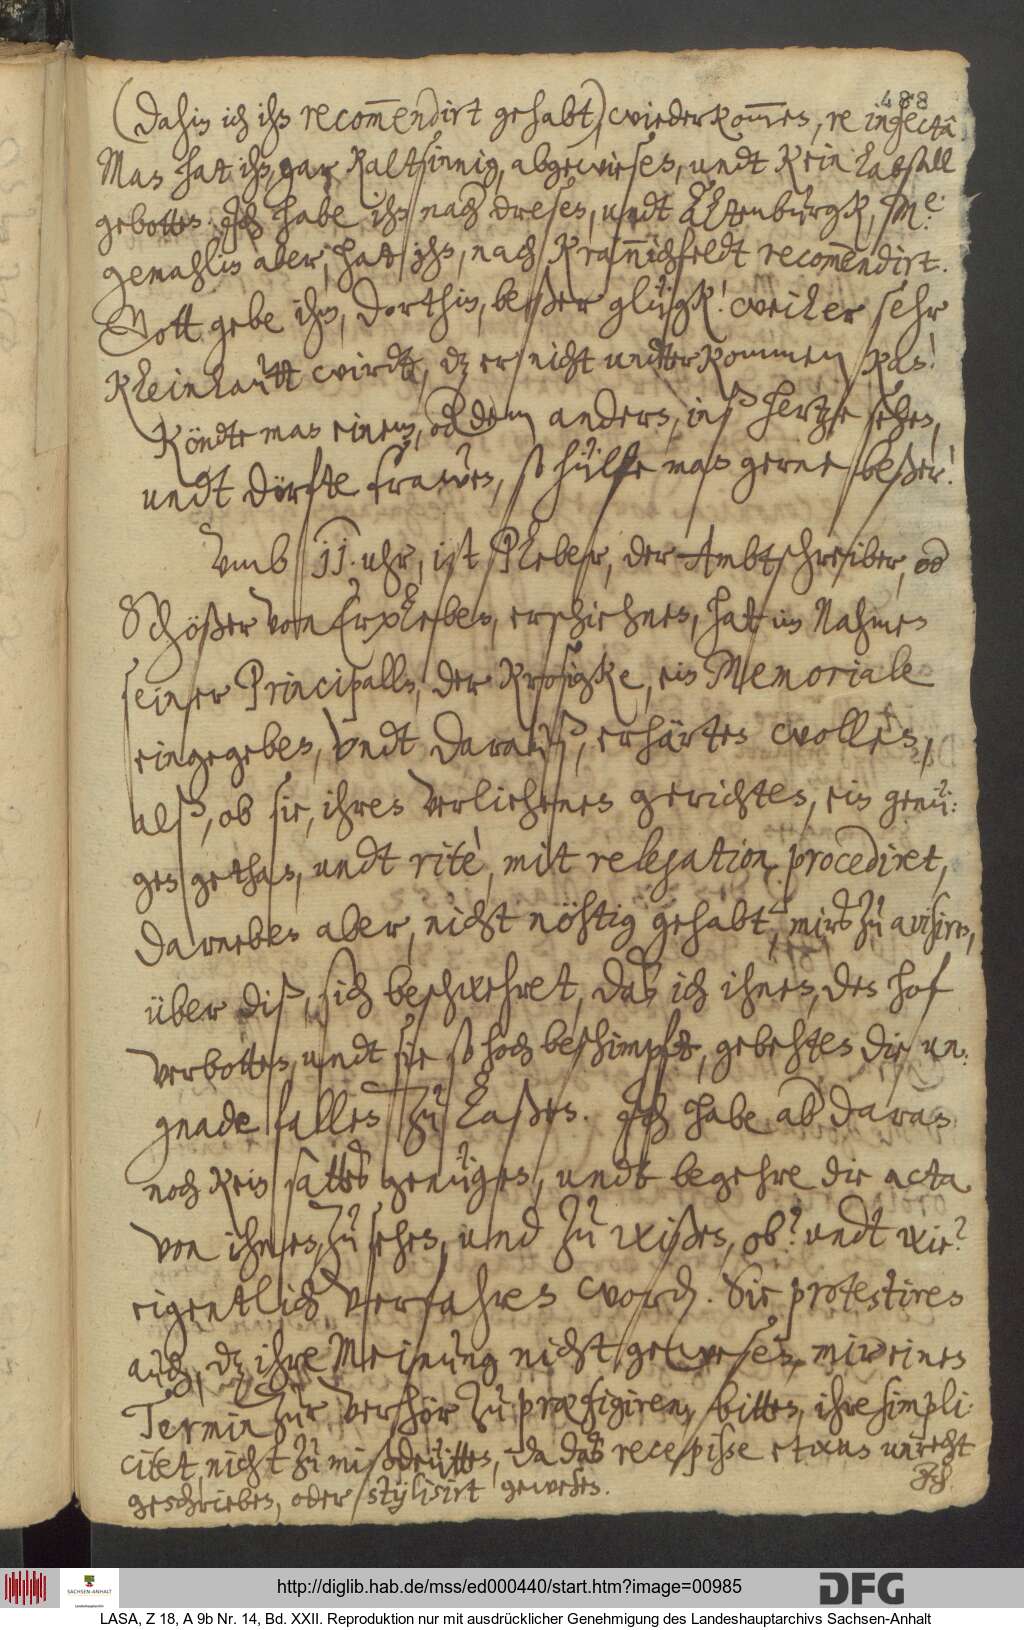 488
(dahin ich ihn recom̅endirt gehabt,) wiederkom̅en, re infectâ
Man hat ihn, gar kaltsinnig, abgewiesen, undt kein labsall
gebotten. Ich habe ihn nach Dresen, undt Altenburgk, Me:
gemahlin aber, hat ihn, nach Kran̅ichfeldt recom̅endirt.
Gott gebe ihm, dorthin, beßer glügk! welcher sehr
kleinlautt wirdt, dz er nicht undterkommen kan!
Köndte man einem, od dem anders, inß hertze sehen,
undt dörfte trawen, so hülfe man gerne beßer!
Vmb 11. uhr, ist Pleber, der Ambtschreiber, od
Schößer von Erxleben, erschienen, hat im Nahmen
seiner Principalln, der Krosigke, ein Memoriale
eingegeben, Vndt darauß, erhärten wollen,
alß, ob sie, ihren Verliehenen gerichten, ein genü:
gen gethan, undt rité, mit relegation procediret,
darneben aber, nicht nöhtig gehabt, mirs zu avisiren,
über diß, sich beschwehret, daß ich ihnen, den hof
verbotten, undt sie so hoch beschimpft, gebehten die un:
gnade fallen zu laßen. Ich habe ab daran
noch kein sattes genügen, undt begehre die acta
von ihnen, zu sehen, und zu wißen, ob? undt wie?
eigentlich verfahren word. Sie protestiren
auch, dz ihre Meinung nicht gewesen, mir einen
Termin zur verhör zu præfigiren, bitten, ihre simpli:
citet, nicht zu mißdeütten, da daß recepisse etwas unrecht
geschrieben, oder stylisirt gewesen.
Ich
http://diglib.hab.de/mss/ed000440/start.htm?image=00985
DFG
SACHSEN-ANHALT
LASA, Z 18, A 9b Nr. 14, Bd. XXII. Reproduktion nur mit ausdrücklicher Genehmigung des Landeshauptarchivs Sachsen-Anhalt